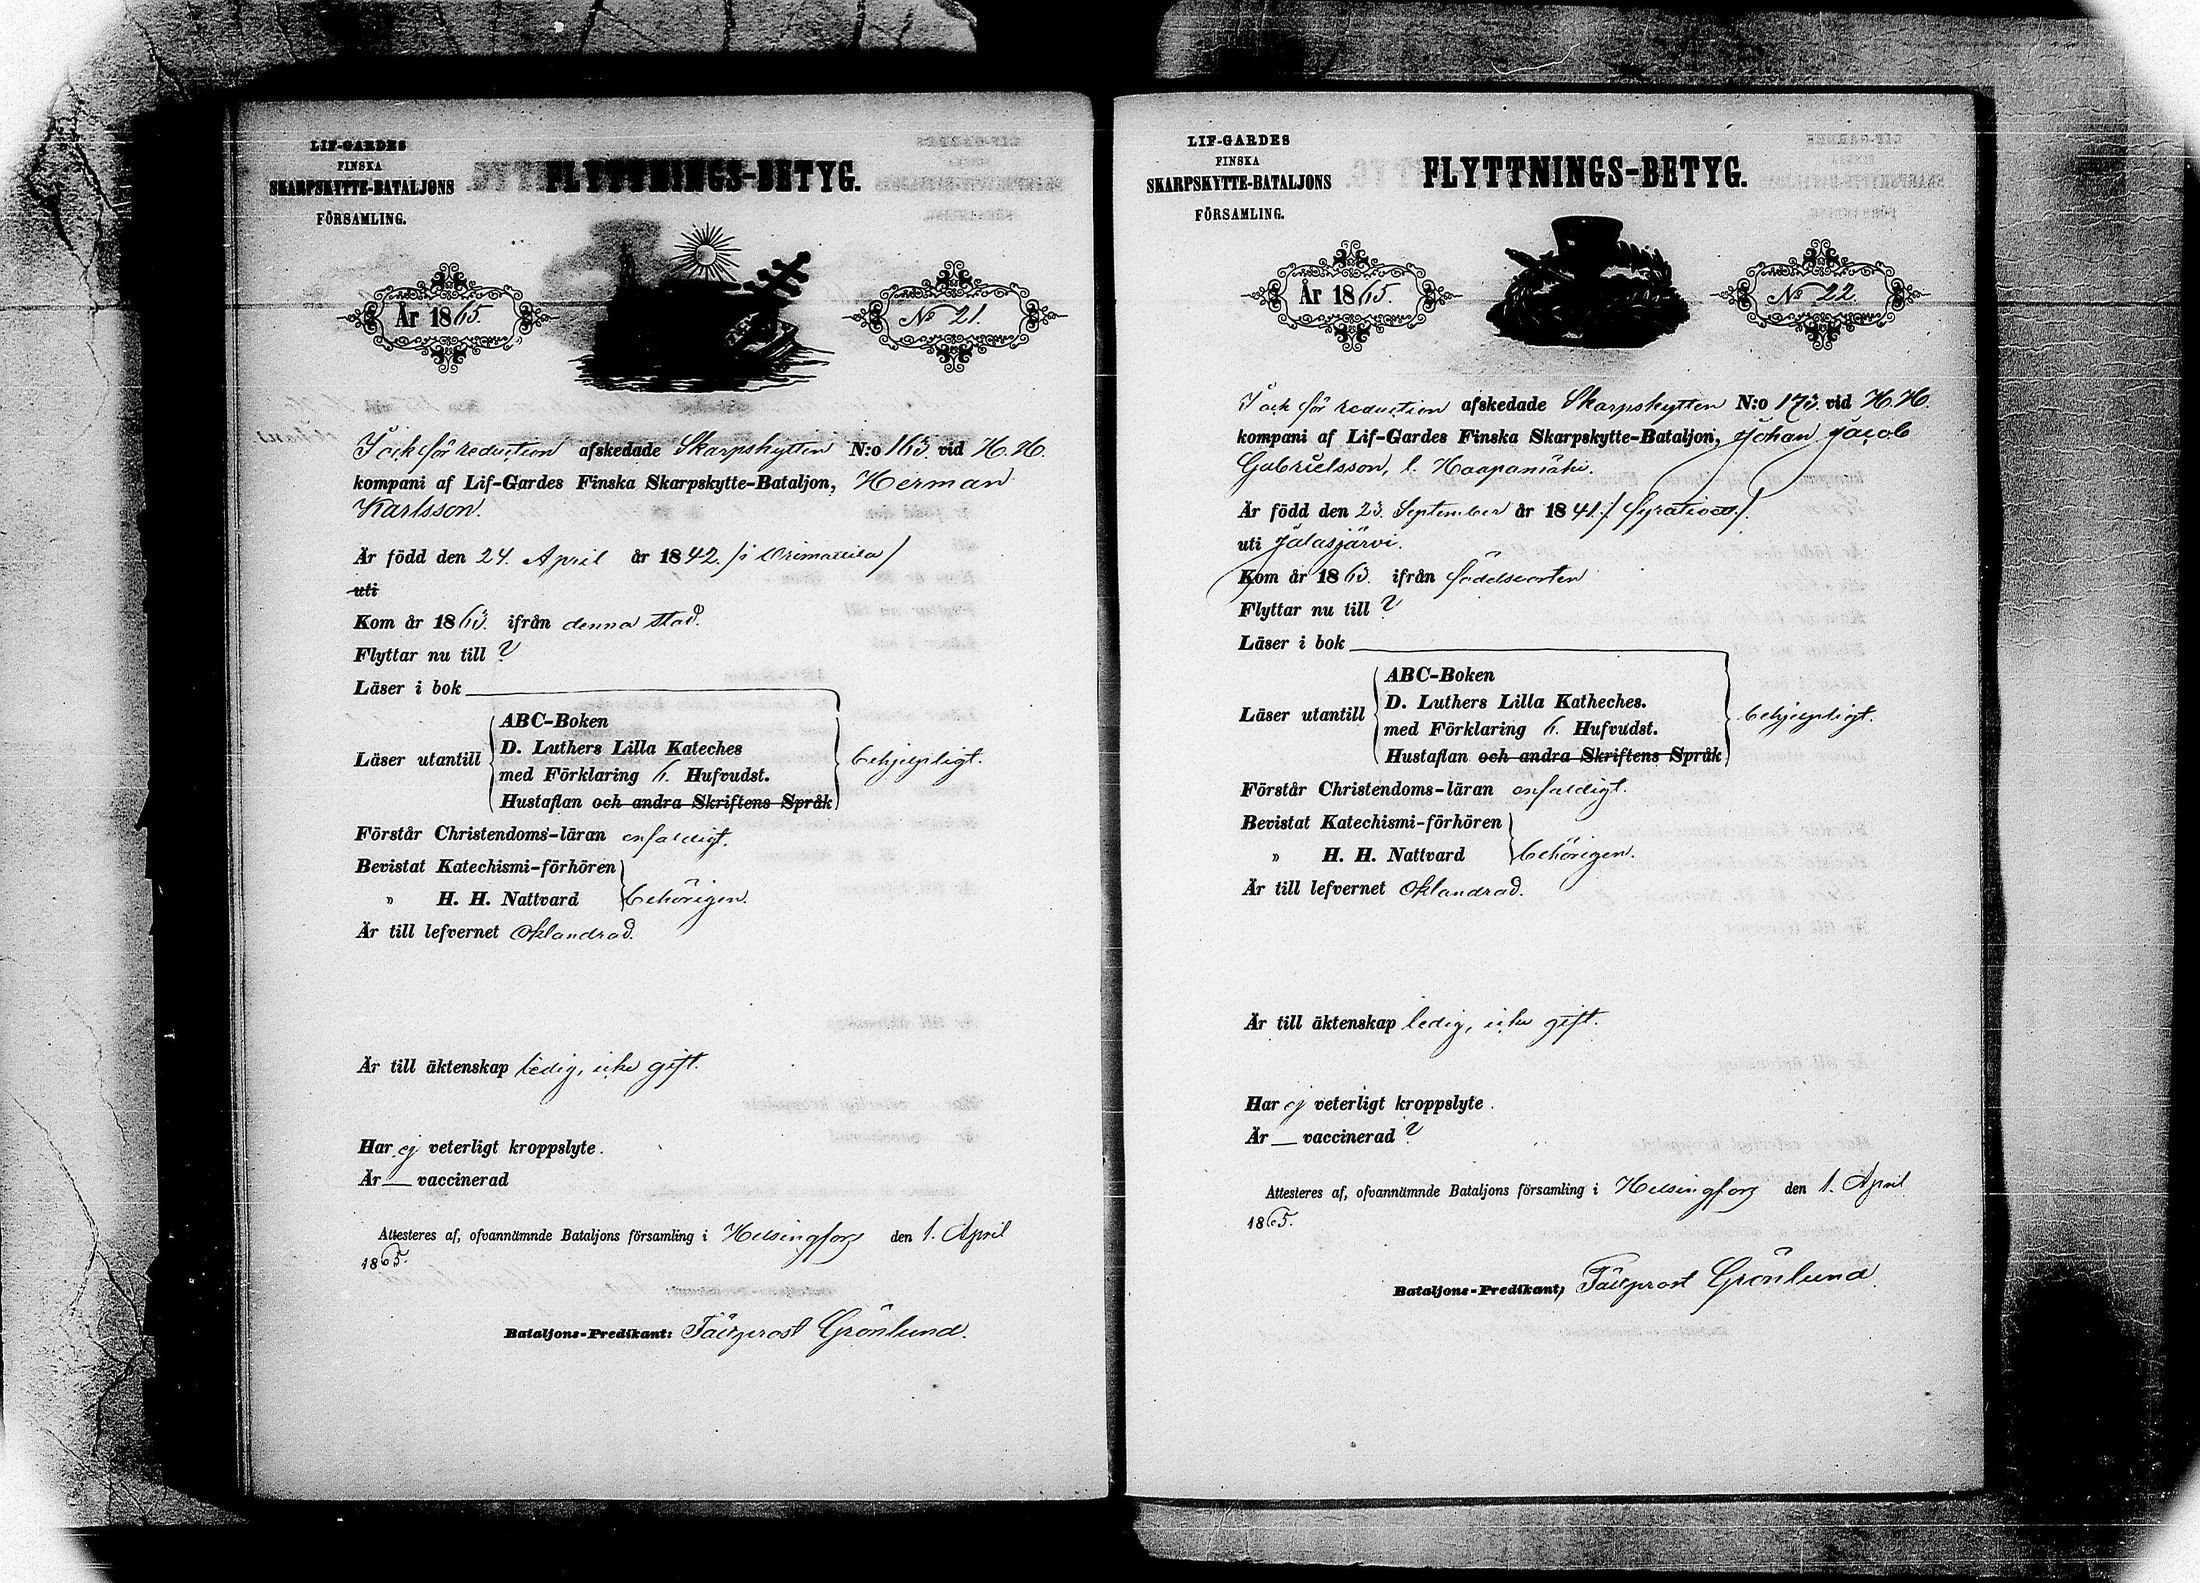 LIF-GARDES
FINSKA
SKARPSKYTTE-BATALJONS
FÖRSAMLING.
FLYTTNINGS-BETYG.
År 1865.
No 21.
och för reduction afskedade Skarpskytten N:o 163. vid H. H.
kompani af Lif-Gardes Finska Skarpskytte-Bataljon, Herman
Karlsson.
Är född den 24. April år 1842. /i Orimattila/
uti
Kom år 1863. ifrån denna stad.
Flyttar nu till ?
Läser i bok
Läser utantill
ABC-Boken
D. Luthers Lilla Kateches
med Förklaring 6. Hufvudst.
Hustaflan och andra Skriftens Språk
behjelpligt.
Förstår Christendoms-läran enfaldigt.
Bevistat Katechismi-förhören
" H. H. Nattvard behörigen.
Är till lefvernet oklandrad.
Är till äktenskap ledig, icke gift.
Har ej veterligt kroppslyte.
Är — vaccinerad
Attesteres af, ofvannämnde Bataljons församling i Helsingfors den 1. April
1865.
Bataljons-Predikant: Fältprost Grönlund.
LIF-GARDES
FINSKA
SKARPSKYTTE-BATALJONS
FÖRSAMLING.
FLYTTNINGS-BETYG.
År 1865.
No 22.
och för reduction afskedade Skarpskytten N:o 173. vid H. H.
kompani af Lif-Gardes Finska Skarpskytte-Bataljon, Johan Jacob
Gabrielsson, l. Haapamäki.
Är född den 23. September år 1841.
uti Jalasjärvi.
Kom år 1863. ifrån födelseorten
Flyttar nu till ?
Läser i bok
Läser utantill
ABC-Boken
D. Luthers Lilla Katheches.
med Förklaring 6. Hufvudst.
Hustaflan och andra Skriftens Språk
behjelpligt.
Förstår Christendoms-läran enfaldigt.
Bevistat Katechismi-förhören
" H. H. Nattvard behörigen.
Är till lefvernet oklandrad.
Är till äktenskap ledig, icke gift.
Har ej veterligt kroppslyte.
Är — vaccinerad ?
Attesteres af, ofvannämnde Bataljons församling i Helsingfors den 1. April
1865.
Bataljons-Predikant, Fältprost Grönlund.